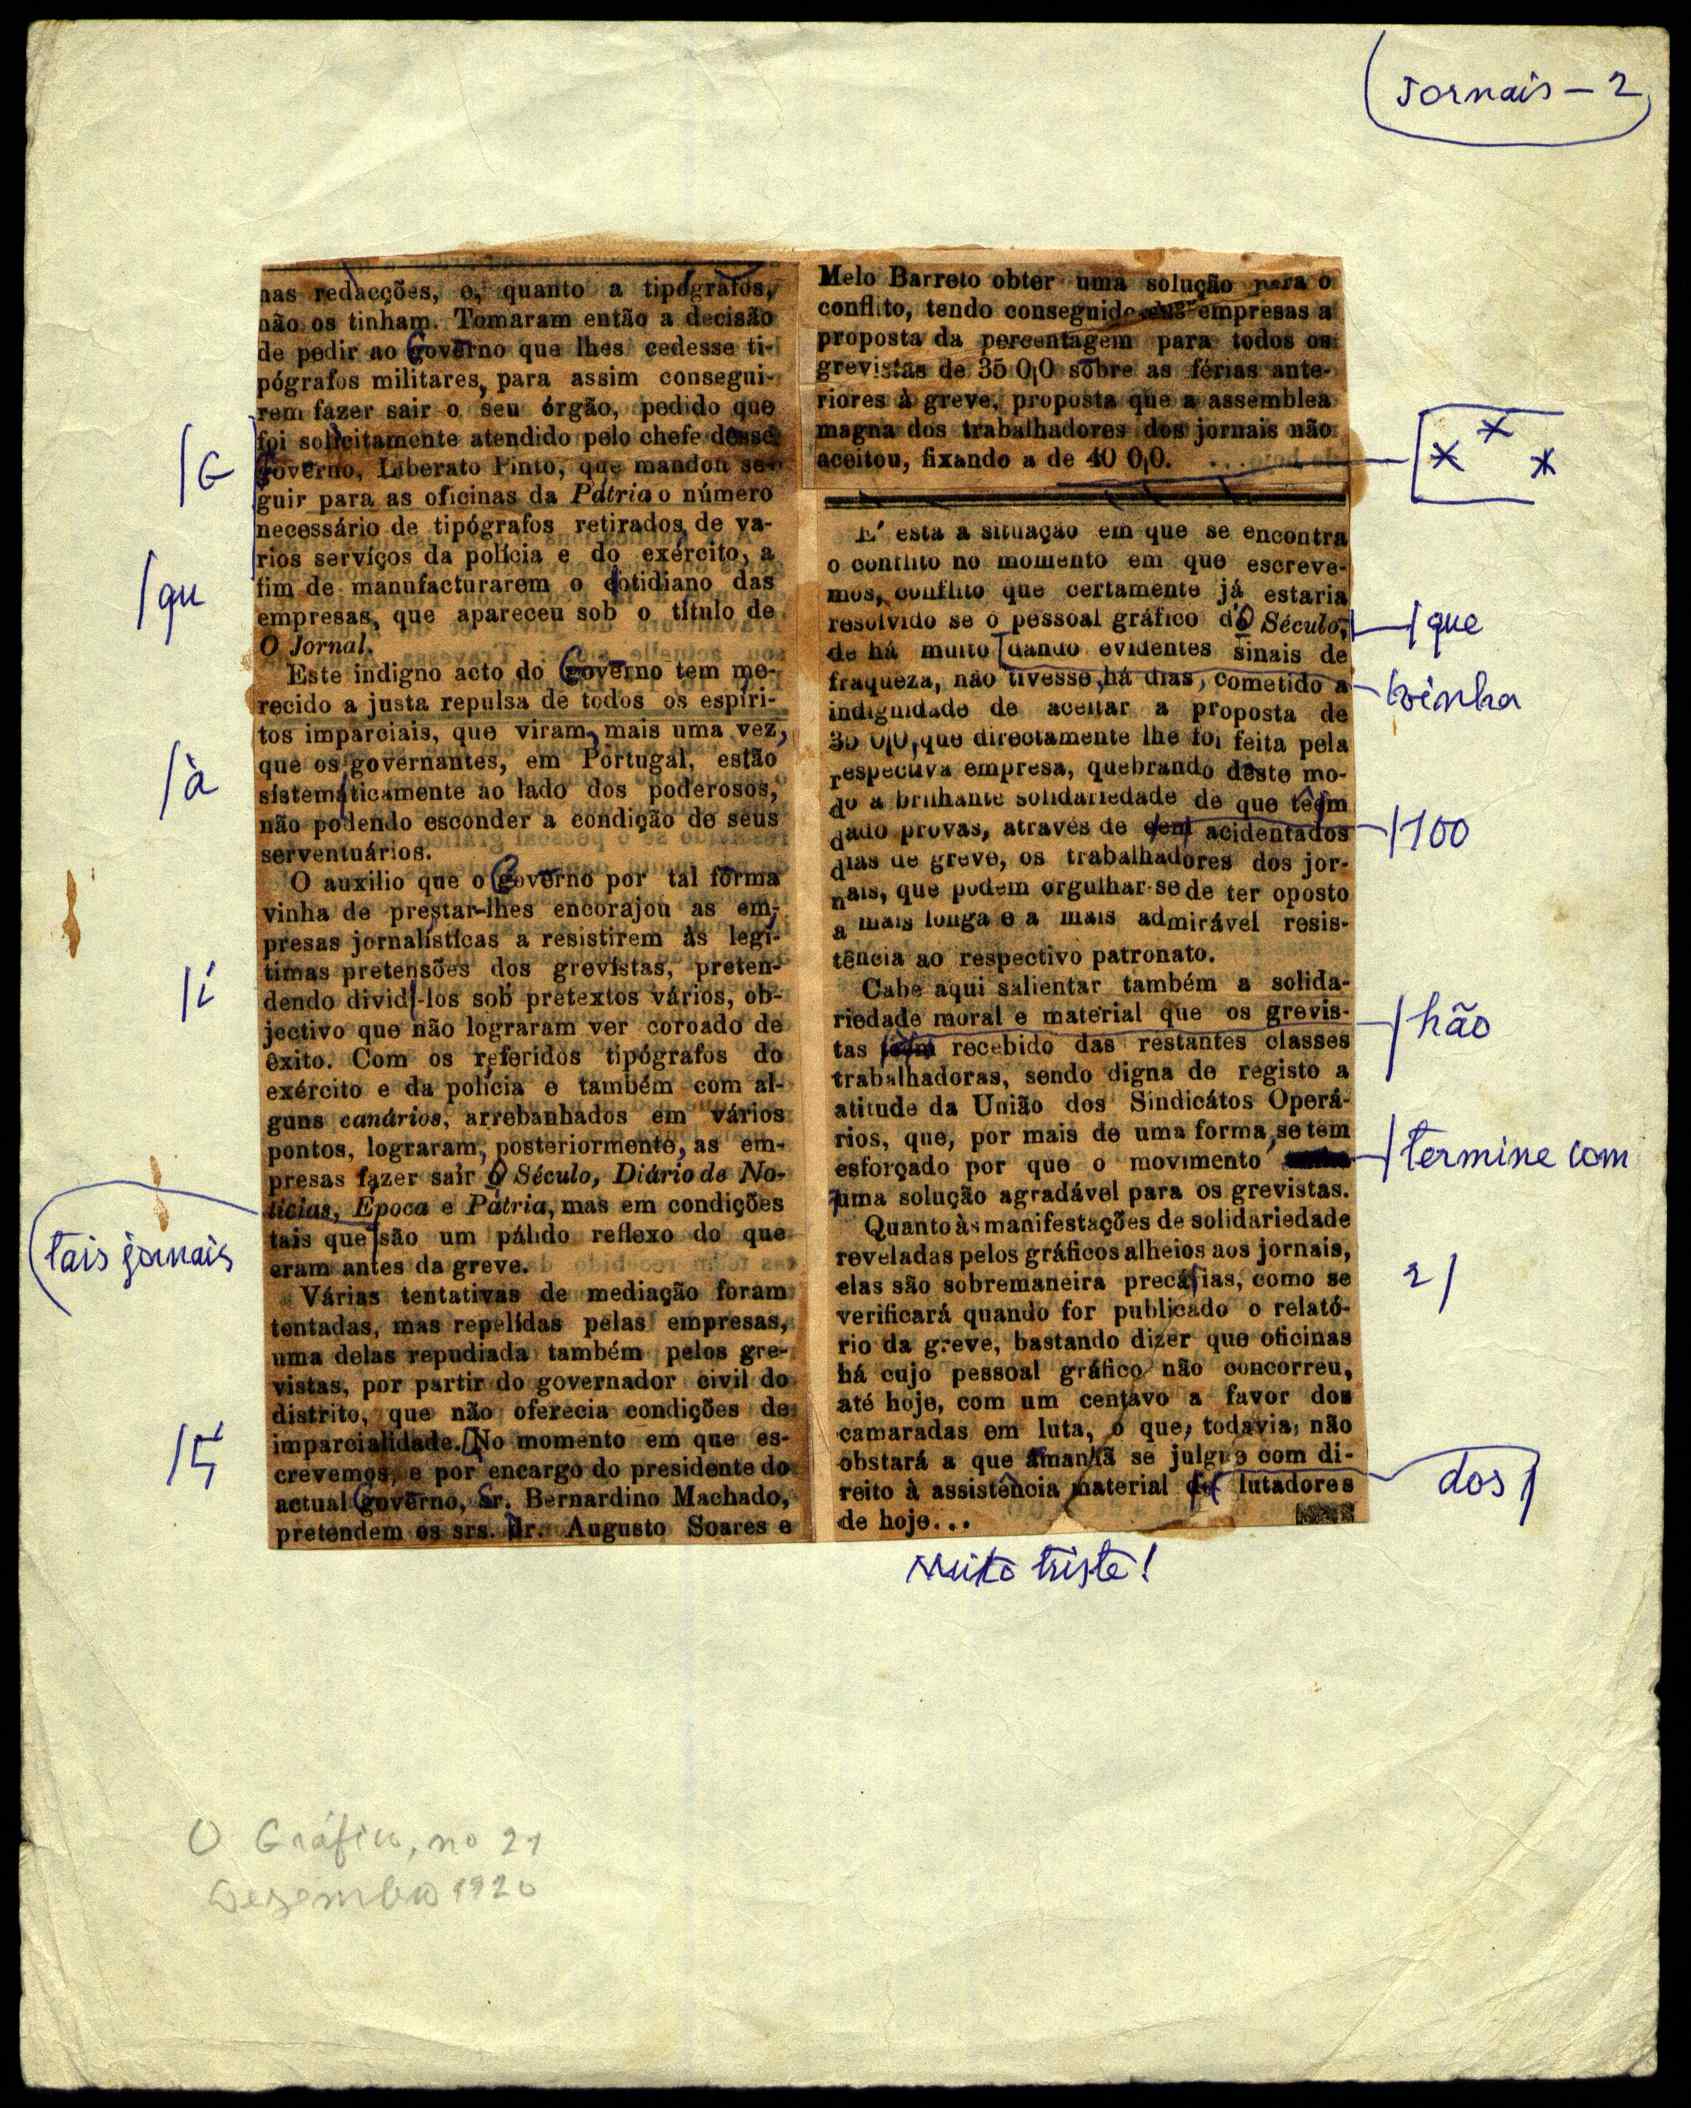 Jornais – 2
nas redacções, e, quanto a tipógrafos,
não os tinham. Tomaram então a decisão
de pedir ao Governo que lhes cedesse ti-
pógrafos militares, para assim consegui-
rem fazer sair o seu órgão, pedido que
foi solicitamente atendido pelo chefe desse
Governo, Liberato Pinto, que mandou se-
guir para as oficinas da Pátria o número
necessário de tipógrafos retirados de vá-
rios serviços da polícia e do exército, a
fim de manufacturarem o cotidiano das
empresas, que apareceu sob o título de
O Jornal.
Este indigno acto do Governo tem me-
recido a justa repulsa de todos os espíri-
tos imparciais, que viram, mais uma vez,
que os governantes, em Portugal, estão
sistemáticamente ao lado dos poderosos,
não podendo esconder a condição de seus
serventuários.
O auxílio que o Governo por tal forma
vinha de prestar-lhes encorajou as em-
presas jornalísticas a resistirem às legí-
timas pretensões dos grevistas, preten-
dendo dividi-los sob pretextos vários, ob-
jectivo que não lograram ver coroado de
êxito. Com os referidos tipógrafos do
exército e da polícia e também com al-
guns canários, arrebanhados em vários
pontos, lograram, posteriormente, as em-
presas fazer sair O Século, Diário de No-
tícias, Época e Pátria, mas em condições
tais que são um pálido reflexo do que
eram antes da greve.
Várias tentativas de mediação foram
tentadas, mas repelidas pelas empresas,
uma delas repudiada também pelos gre-
vistas, por partir do governador civil do
distrito, que não oferecia condições de
imparcialidade. No momento em que es-
crevemos, e por encargo do presidente do
actual Governo, sr. Bernardino Machado,
pretendem os srs. dr. Augusto Soares e
/G
/qu
/à
/í
tais jornais
Melo Barreto obter uma solução para o
conflito, tendo conseguido das empresas a
proposta da percentagem para todos os
grevistas de 35 0/0 sôbre as férias ante-
riores à greve, proposta que a assemblea
magna dos trabalhadores dos jornais não
aceitou, fixando a de 40 0/0.
* * *
E' esta a situação em que se encontra
o conflito no momento em que escreve-
mos, conflito que certamente já estaria
resolvido se o pessoal gráfico d'O Século,
de há muito dando evidentes sinais de
fraqueza, não tivesse, há dias, cometido a
indignidade de aceitar a proposta de
35 0/0, que directamente lhe foi feita pela
respectiva empresa, quebrando dêste mo-
do a brilhante solidariedade de que têem
dado provas, através de cem acidentados
dias de greve, os trabalhadores dos jor-
nais, que podem orgulhar-se de ter oposto
a mais longa e a mais admirável resis-
tência ao respectivo patronato.
Cabe aqui salientar também a solida-
riedade moral e material que os grevis-
tas têem recebido das restantes classes
trabalhadoras, sendo digna de registo a
atitude da União dos Sindicátos Operá-
rios, que, por mais de uma forma, se tem
esforçado por que o movimento
uma solução agradável para os grevistas.
Quanto às manifestações de solidariedade
reveladas pelos gráficos alheios aos jornais,
elas são sobremaneira precárias, como se
verificará quando for publicado o relató-
rio da greve, bastando dizer que oficinas
há cujo pessoal gráfico não concorreu,
até hoje, com um centavo a favor dos
camaradas em luta, o que, todavia, não
obstará a que ámanhã se julgue com di-
reito à assistência material dos lutadores
de hoje...
/que
tvinha
/100
/hão
/termine com
2/
dos/
Muito triste!
O Gráfico, no 21
Dezembro 1920